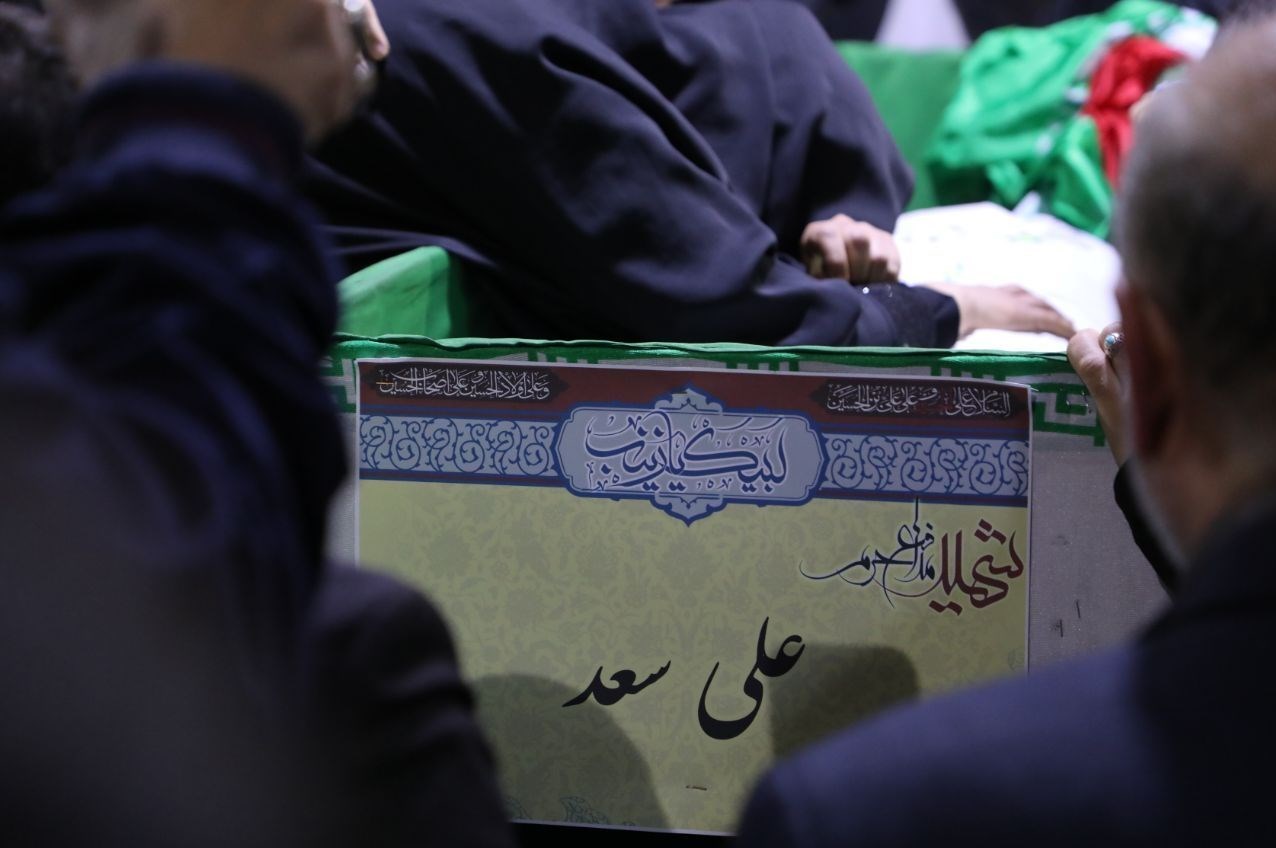 السلام علی الحسین و علی علی بن الحسین
و علی اولاد الحسین و علی اصحاب الحسین
لبیک یا زینب
شهید مدافع حرم
علی سعد